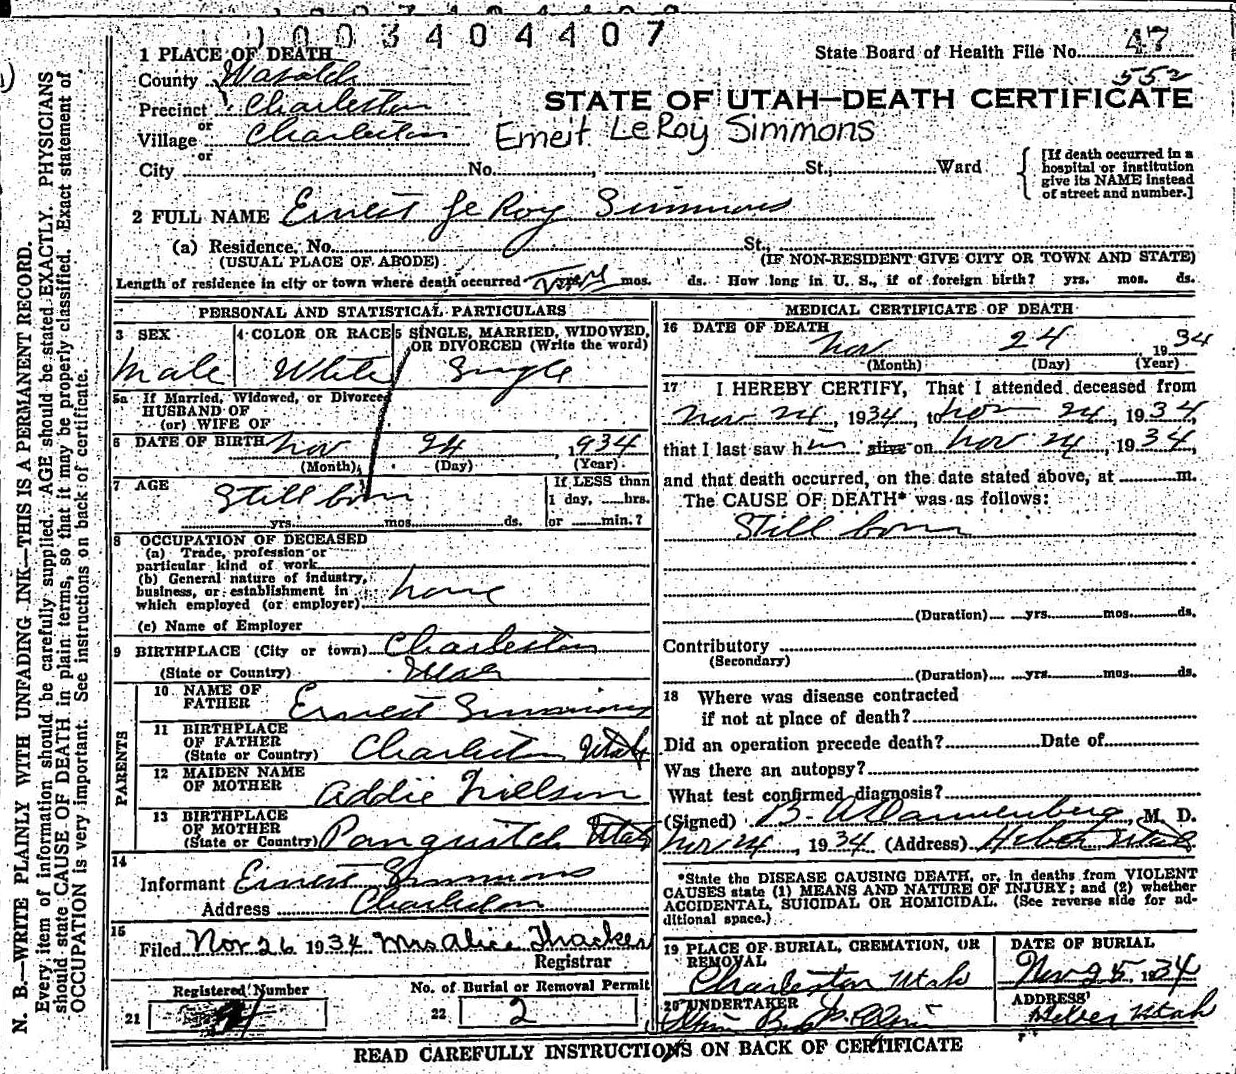 0003404407
1 PLACE OF DEATH
State Board of Health File No. 47
552
County Wasatch
Precinct Charleston
or
Village Charleston
or
STATE OF UTAH—DEATH CERTIFICATE
Ernest LeRoy Simmons
City No. , St., Ward
[If death occurred in a hospital or institution give its NAME instead of street and number.]
2 FULL NAME Ernest Le Roy Simmons
(a) Residence, No. St.,
(USUAL PLACE OF ABODE) (IF NON-RESIDENT GIVE CITY OR TOWN AND STATE)
Length of residence in city or town where death occurred mos. ds. How long in U. S., if of foreign birth? yrs. mos. ds.
PERSONAL AND STATISTICAL PARTICULARS
3 SEX 4 COLOR OR RACE 5 SINGLE, MARRIED, WIDOWED, OR DIVORCED (Write the word)
Male White Single
5a If Married, Widowed, or Divorced
HUSBAND OF
(or) WIFE OF
6 DATE OF BIRTH Nov 24, 1934
(Month) (Day) (Year)
7 AGE Still born
If LESS than
1 day, hrs.
yrs. mos. ds. or min.?
8 OCCUPATION OF DECEASED
(a) Trade, profession or
particular kind of work
(b) General nature of industry,
business, or establishment in
which employed (or employer) none
(c) Name of Employer
9 BIRTHPLACE (City or town) Charleston
(State or Country) Utah
PARENTS
10 NAME OF FATHER Ernest Simmons
11 BIRTHPLACE OF FATHER
(State or Country) Charleston Utah
12 MAIDEN NAME OF MOTHER Addie Nielson
13 BIRTHPLACE OF MOTHER
(State or Country) Panguitch Utah
14
Informant Ernest Simmons
Address Charleston
15
Filed Nov 26 1934 Mrs Alice Thacker
Registrar
Registered Number No. of Burial or Removal Permit
21 22 2
MEDICAL CERTIFICATE OF DEATH
16 DATE OF DEATH
Nov 24 1934
(Month) (Day) (Year)
17 I HEREBY CERTIFY, That I attended deceased from
Nov 24, 1934, to Nov 24, 1934
that I last saw him alive on Nov 24, 1934,
and that death occurred, on the date stated above, at m.
The CAUSE OF DEATH* was as follows:
Still born
(Duration) yrs. mos. ds.
Contributory
(Secondary)
(Duration) yrs. mos. ds.
18 Where was disease contracted
if not at place of death?
Did an operation precede death? Date of
Was there an autopsy?
What test confirmed diagnosis?
(Signed) B. A Dannenberg, M. D.
Nov 24, 1934 (Address) Heber Utah
*State the DISEASE CAUSING DEATH, or, in deaths from VIOLENT
CAUSES state (1) MEANS AND NATURE OF INJURY; and (2) whether
ACCIDENTAL, SUICIDAL OR HOMICIDAL. (See reverse side for ad-
ditional space.)
19 PLACE OF BURIAL, CREMATION, OR REMOVAL DATE OF BURIAL
Charleston Utah Nov 25 1934
20 UNDERTAKER ADDRESS
Heber Utah
READ CAREFULLY INSTRUCTIONS ON BACK OF CERTIFICATE
N. B.—WRITE PLAINLY WITH UNFADING INK—THIS IS A PERMANENT RECORD.
Every item of information should be carefully supplied. AGE should be stated EXACTLY. PHYSICIANS
should state CAUSE OF DEATH in plain terms, so that it may be properly classified. Exact statement of
OCCUPATION is very important. See instructions on back of certificate.